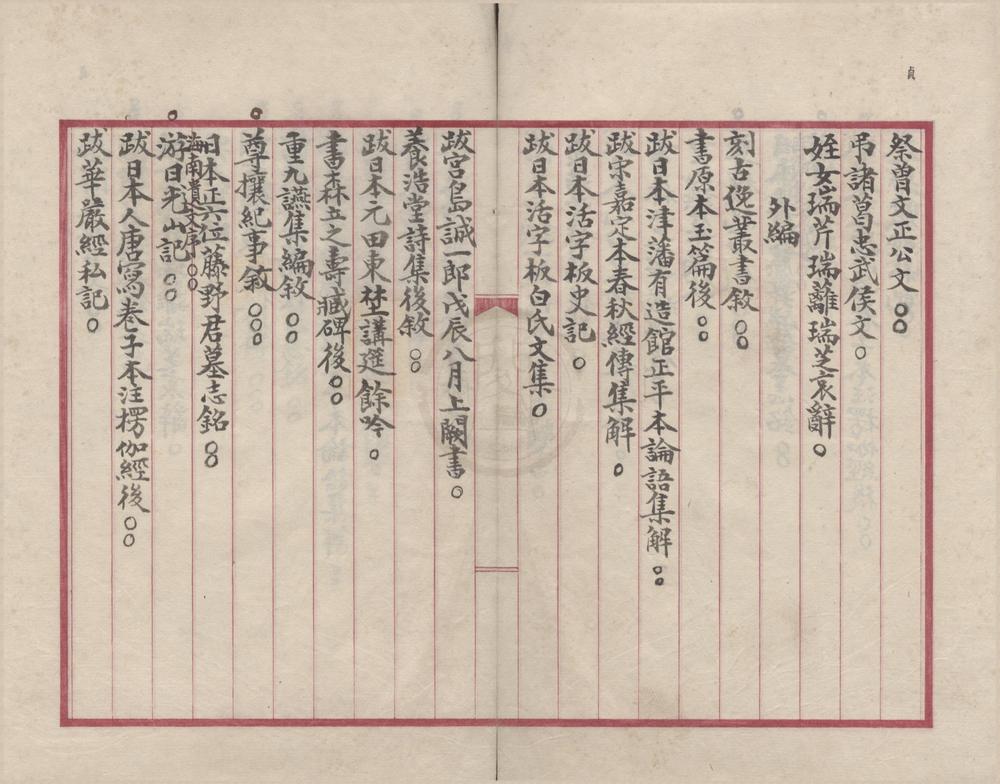 貞
祭曾文正公文○○
弔諸葛忠武侯文○
姪女瑞芹瑞蘺瑞芝哀辭○
外編
刻古逸叢書敘○○
書原本玉篇後○○
跋日本津藩有造館正平本論語集解○○
跋宋嘉定本春秋經傳集解○
跋日本活字板史記○
跋日本活字板白氏文集○
跋宮島誠一郎戊辰八月上闕書○
養浩堂詩集後敘○○
跋日本元田東埜講筵餘吟○
書森立之壽臧碑後○○
重九讌集編敘○○
○尊攘紀事敘○○○
日本正六位藤野君墓志銘○○
海南遺文序○○
○游日光山記○○
跋日本人唐寫卷子本注楞伽經後○○
跋華嚴經私記○